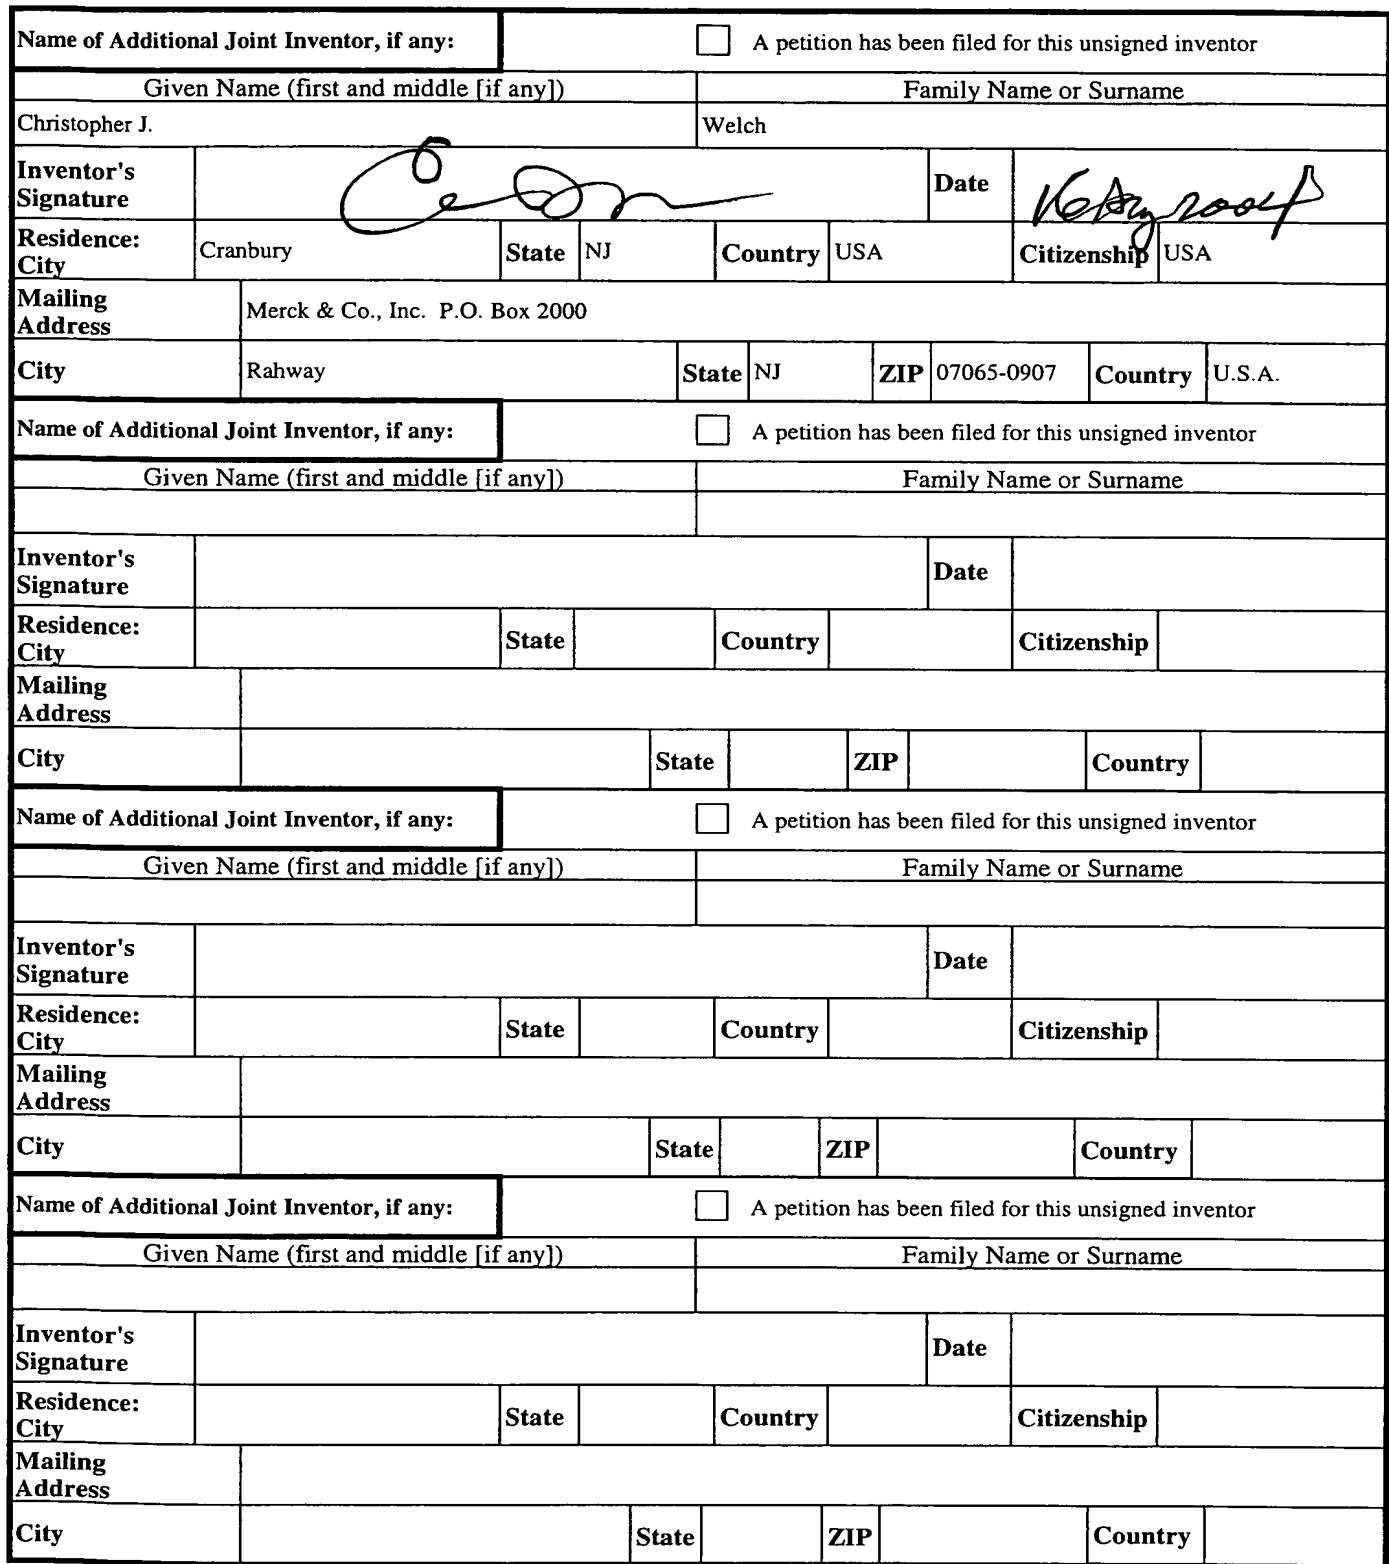 Name of Additional Joint Inventor, if any: A petition has been filed for this unsigned inventor
Given Name (first and middle [if any]) Family Name or Surname
Christopher J. Welch
Inventor's Signature Date
Residence: City Cranbury State NJ Country USA Citizenship USA
Mailing Address Merck & Co., Inc. P.O. Box 2000
City Rahway State NJ ZIP 07065-0907 Country U.S.A.
Name of Additional Joint Inventor, if any: A petition has been filed for this unsigned inventor
Given Name (first and middle [if any]) Family Name or Surname
Inventor's Signature Date
Residence: City State Country Citizenship
Mailing Address
City State ZIP Country
Name of Additional Joint Inventor, if any: A petition has been filed for this unsigned inventor
Given Name (first and middle [if any]) Family Name or Surname
Inventor's Signature Date
Residence: City State Country Citizenship
Mailing Address
City State ZIP Country
Name of Additional Joint Inventor, if any: A petition has been filed for this unsigned inventor
Given Name (first and middle [if any]) Family Name or Surname
Inventor's Signature Date
Residence: City State Country Citizenship
Mailing Address
City State ZIP Country